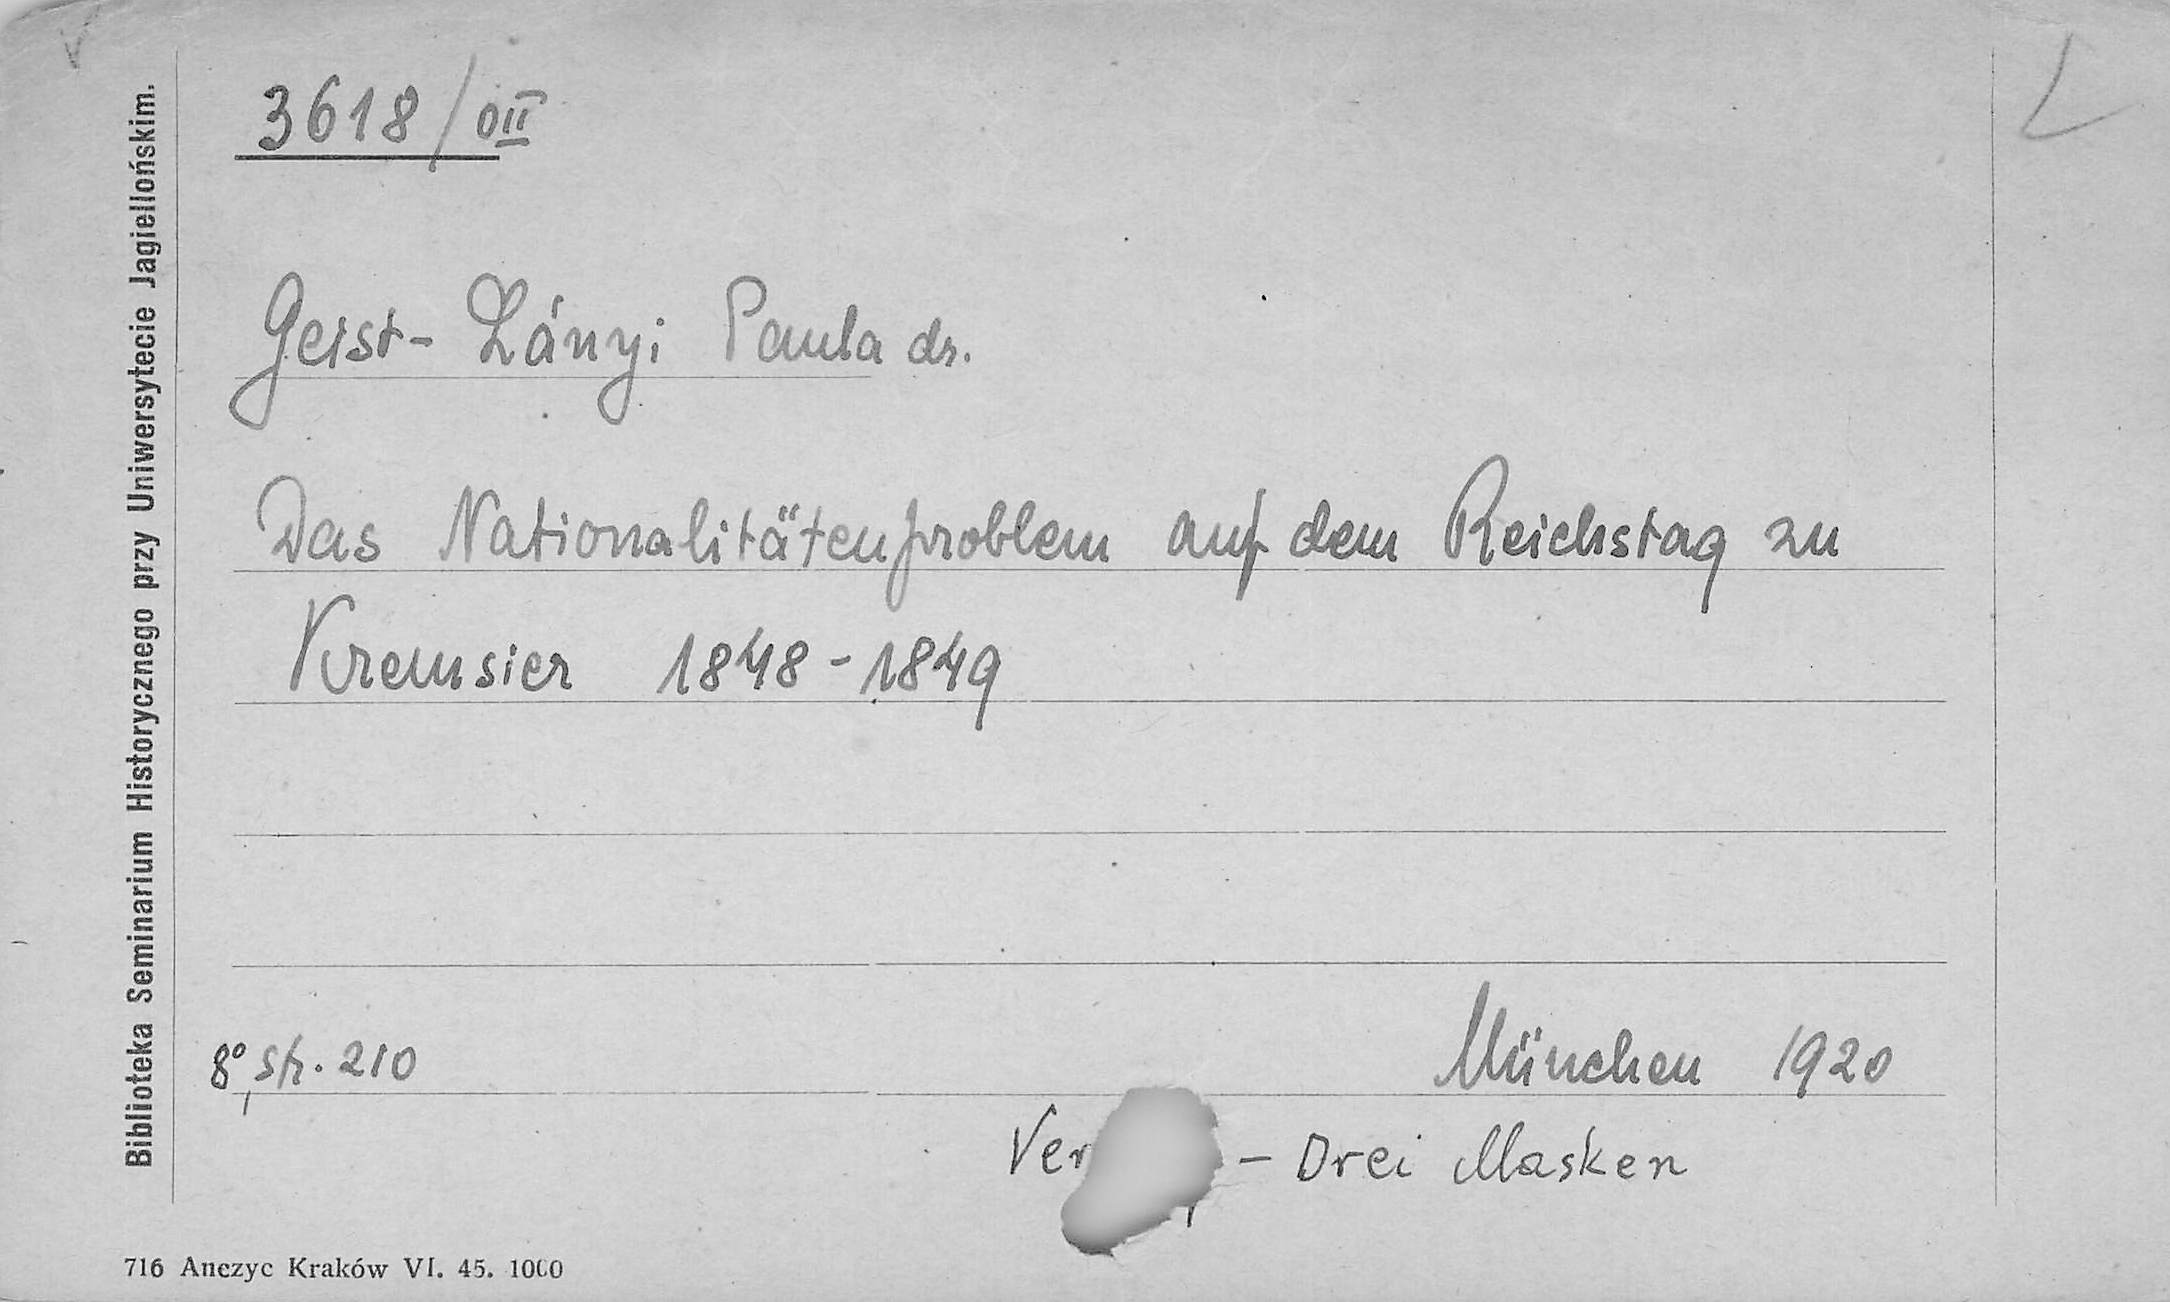 3618/OII
Geist-Lányi Paula dr.
Das Nationalitätenproblem auf dem Reichstag zu
Kremsier 1848-1849
8°, str. 210
München 1920
– Drei Masken
Biblioteka Seminarium Historycznego przy Uniwersytecie Jagiellońskim.
716 Anczyc Kraków VI. 45. 1000